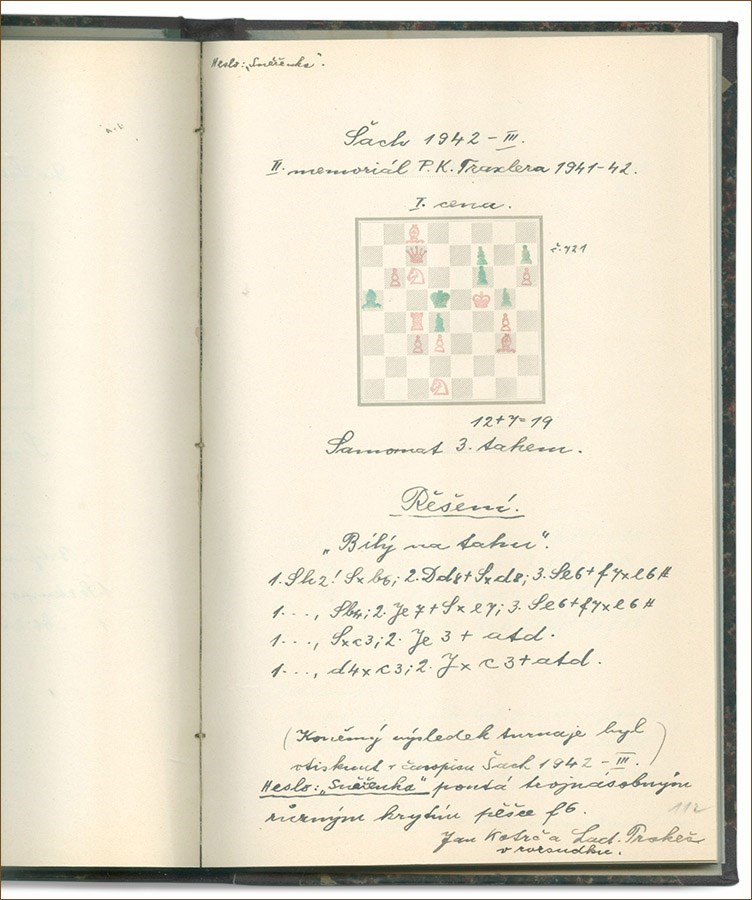 Heslo: „Sněženka".
Šach 1942 – III.
II. memoriál P. K. Traxlera 1941-42.
I. cena.
č. 421
12+7=19
Samomat 3. tahem.
Řěšení.
„Bílý na tahu".
1. Sh2! Sxb6; 2. Dd8+ Sxd8; 3. Se6+ f7xe6#
1. . . ., Sb4; 2. Je7+ Sxe7; 3. Se6+ f7xe6#
1. . . ., Sxc3; 2. Je3+ atd.
1. . . ., d4xc3; 2. Jxc3+ atd.
(Konečný výsledek turnaje byl
vtisknut v časopisu Šach 1942 – III.)
Heslo: „Sněženka" pontá trojnásobným
různým krytím pěšce f6.
112
Jan Kotrč a Lad. Prokeš
v rozsudku.